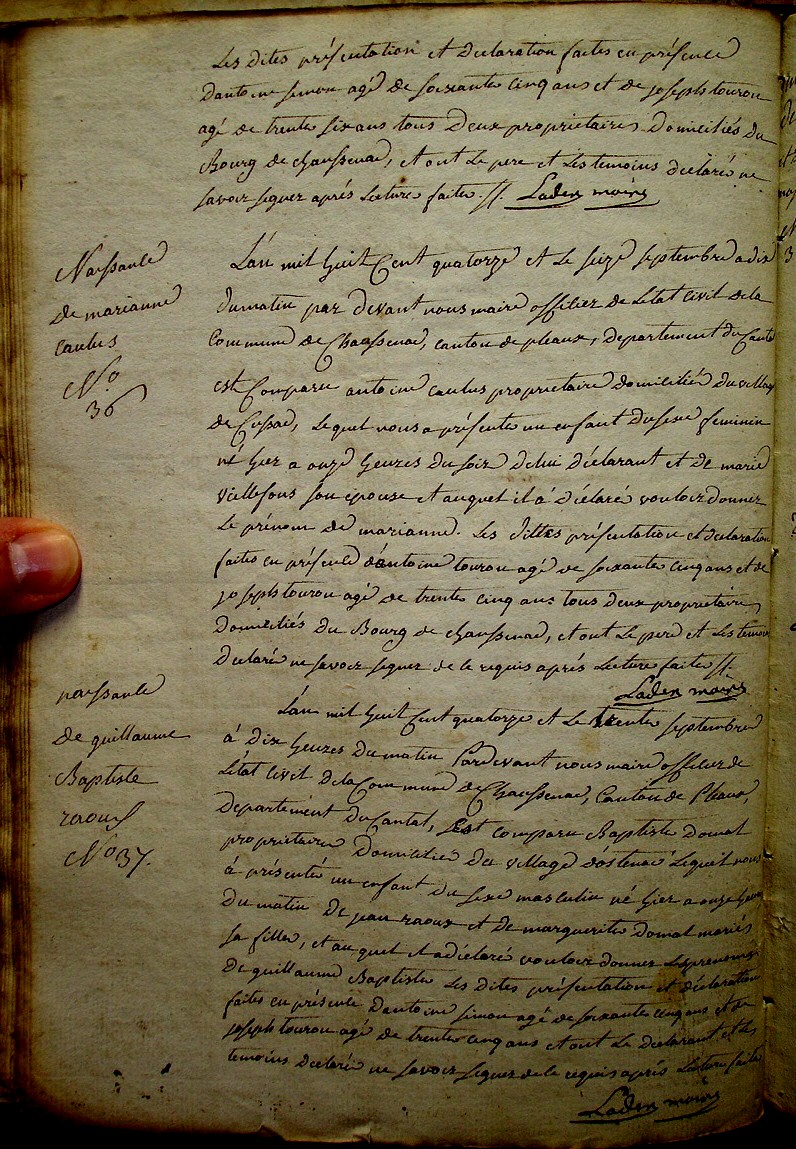 Les Dites présentation et Declaration faites en présence
Dantoine simon agé de soixante cinq ans et de joseph tourou
agé de trente six ans tous Deux proprietaires Domiciliés Du
Bourg de chaussenac, et ont Le pere et Les temoins déclaré ne
savoir signer aprés Lecture faite ./.
Naissance
de marianne
caulus
N.o
36
L'an mil huit Cent quatorze et Le seize septembre a dix
du matin par devant nous maire officier de Létat Civil de la
Commune de Chaussenac, canton de pleaux, departement du Cantal
est Comparu antoine caulus proprietaire domicilié du village
de Cussac, Lequel nous a présenté un enfant du sexe feminin
né hier a onze heures du soir de lui déclarant et de marie
viellefons son épouse et auquel il a déclaré vouloir donner
Le prénom de marianne. Les dittes présentation et declaration
faites en présence d'antoine tourou agé de soixante cinq ans et de
joseph tourou agé de trente cinq ans tous deux proprietaires
Domiciliés Du Bourg de chaussenac, et ont Le pere et Les temoins
Declaré ne savoir signer de ce requis aprés Lecture faite ./.
naissance
de guillaume
Baptiste
raoux
No 37.
L'an mil huit Cent quatorze et Le trente septembre
à dix heures du matin Pardevant nous maire officier de
Létat Civil de la Commune de Chaussenac, Canton de Pleaux,
Departement du Cantal, Est comparu Baptiste Domal
proprietaire Domicilié du village d'ostenac Lequel nous
à présenté un enfant du sexe masculin né hier a onze heures
du matin De jean raoux et de marguerite Domal mariés
sa fille, et auquel il a déclaré vouloir donner Les prenoms
De guillaume Baptiste Les Dites présentation et déclaration
faites en présence Dantoine simon agé de soixante cinq ans et de
joseph tourou agé de trente cinq ans et ont Le Déclarant et les
temoins Declaré ne savoir signer de ce requis aprés Lecture faite